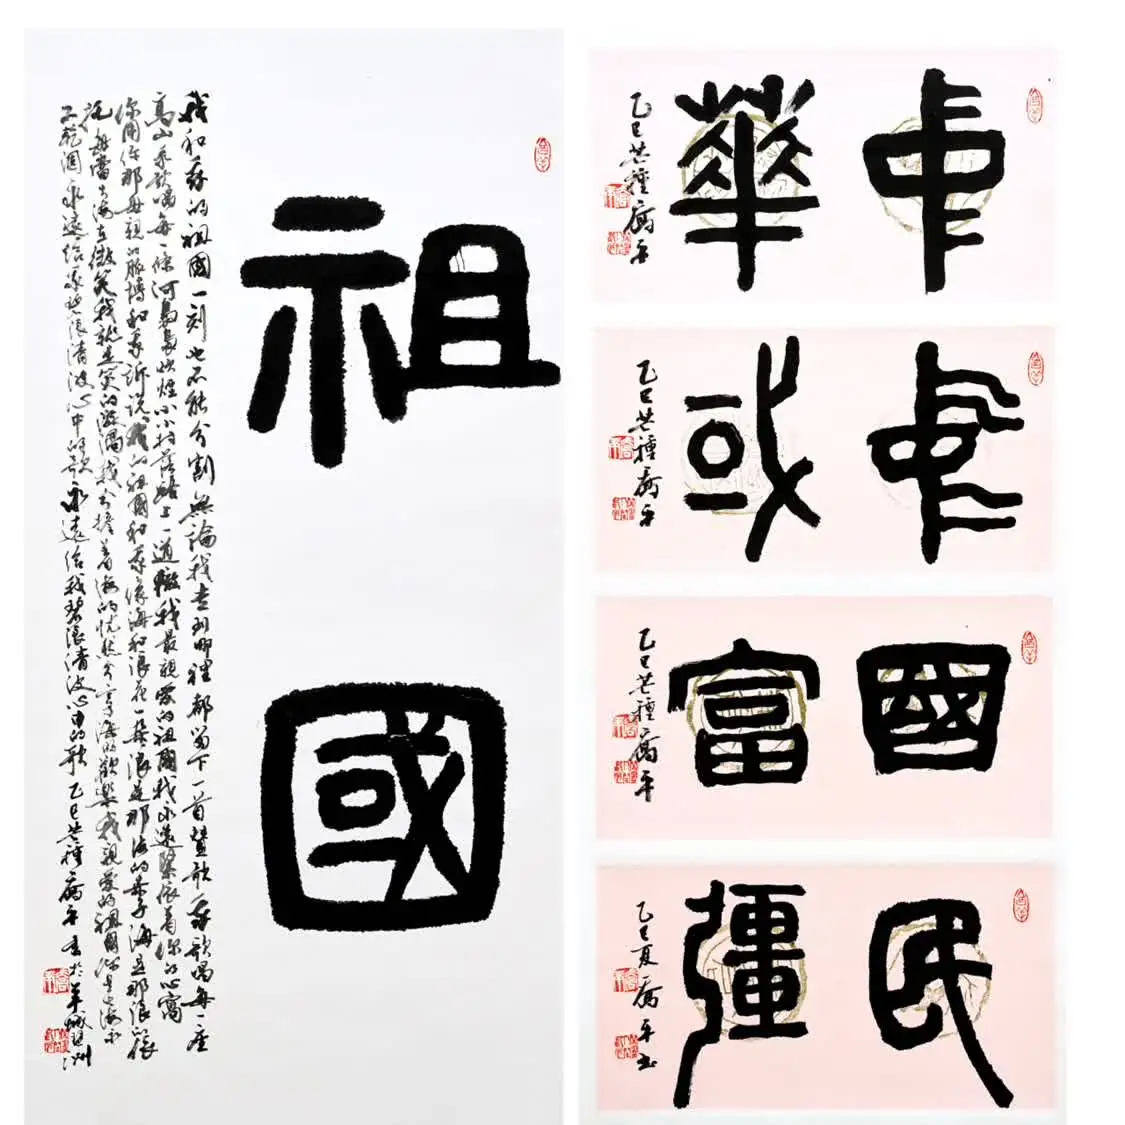 祖國
我和我的祖國一刻也不能分割無論我走到哪裡都留下一首贊歌我歌唱每一座
高山我歌唱每一條河裊裊炊煙小小村落路上一道轍我最親愛的祖國我永遠緊依着你的心窩
你用你那母親的脈搏和我訴說我的祖國和我像海和浪花一朵浪是那海的赤子海是那浪的依
托每當大海在微笑我就是笑的漩渦我分擔着海的憂愁分享海的歡樂我親愛的祖國你是大海永
不乾涸永遠給我碧浪清波心中的歌永遠給我碧浪清波心中的歌乙巳芒種平書於羊城琶洲
中華
乙巳芒種平
中或
乙巳芒種平
國富
乙巳芒種平
民彊
乙巳夏平書